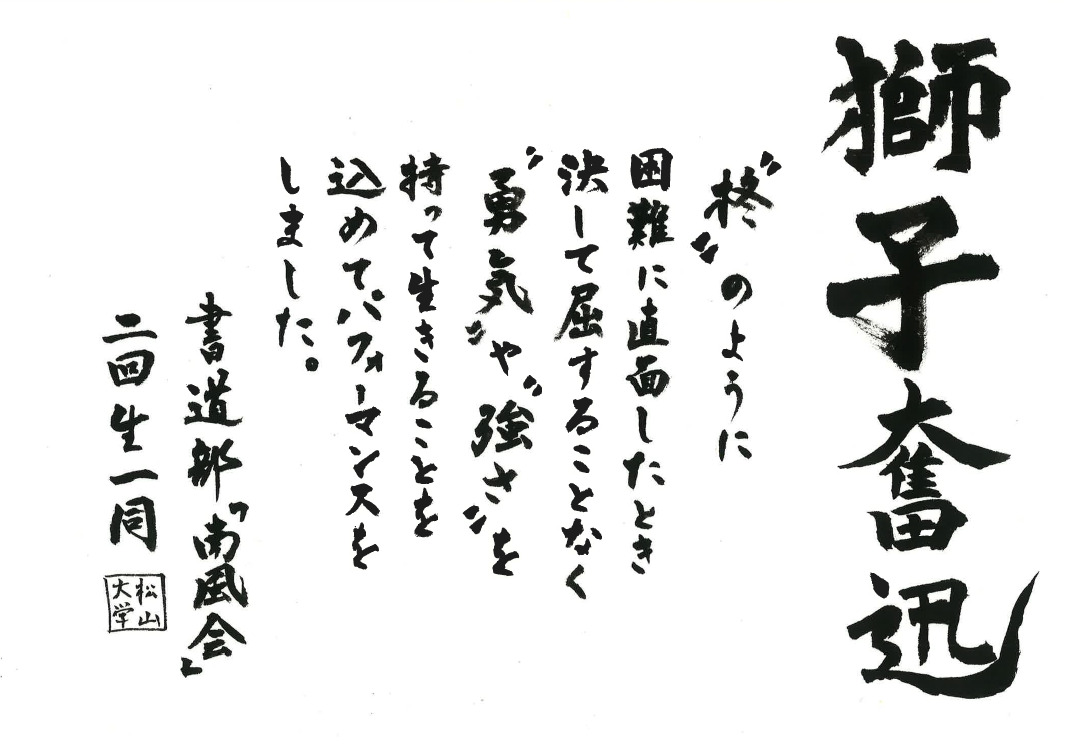 獅子奮迅
〝柊〟のように
困難に直面したとき
決して屈することなく
〝勇気〟や〝強さ〟を
持って生きることを
込めてパフォーマンスを
しました。
書道部「南風会」
二回生一同
松山
大学